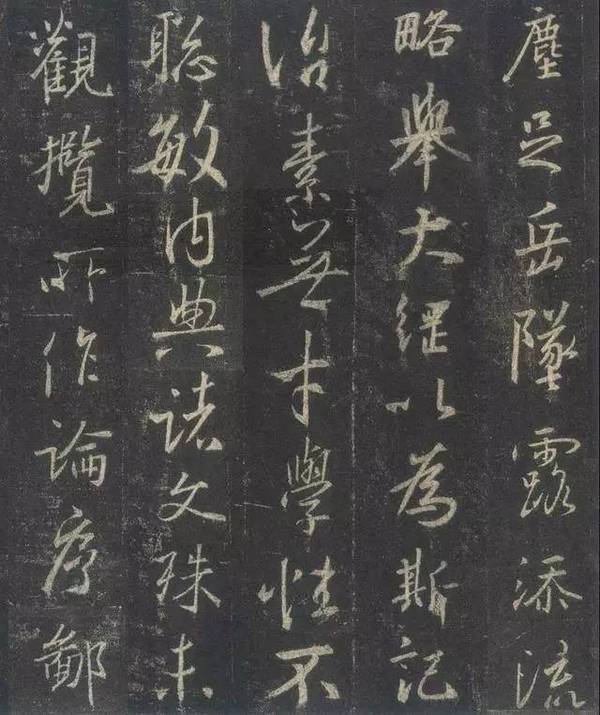 塵足岳墜露添流
略舉大綱以為斯記
治素無才學性不
聰敏內典諸文殊未
觀攬所作論序鄙